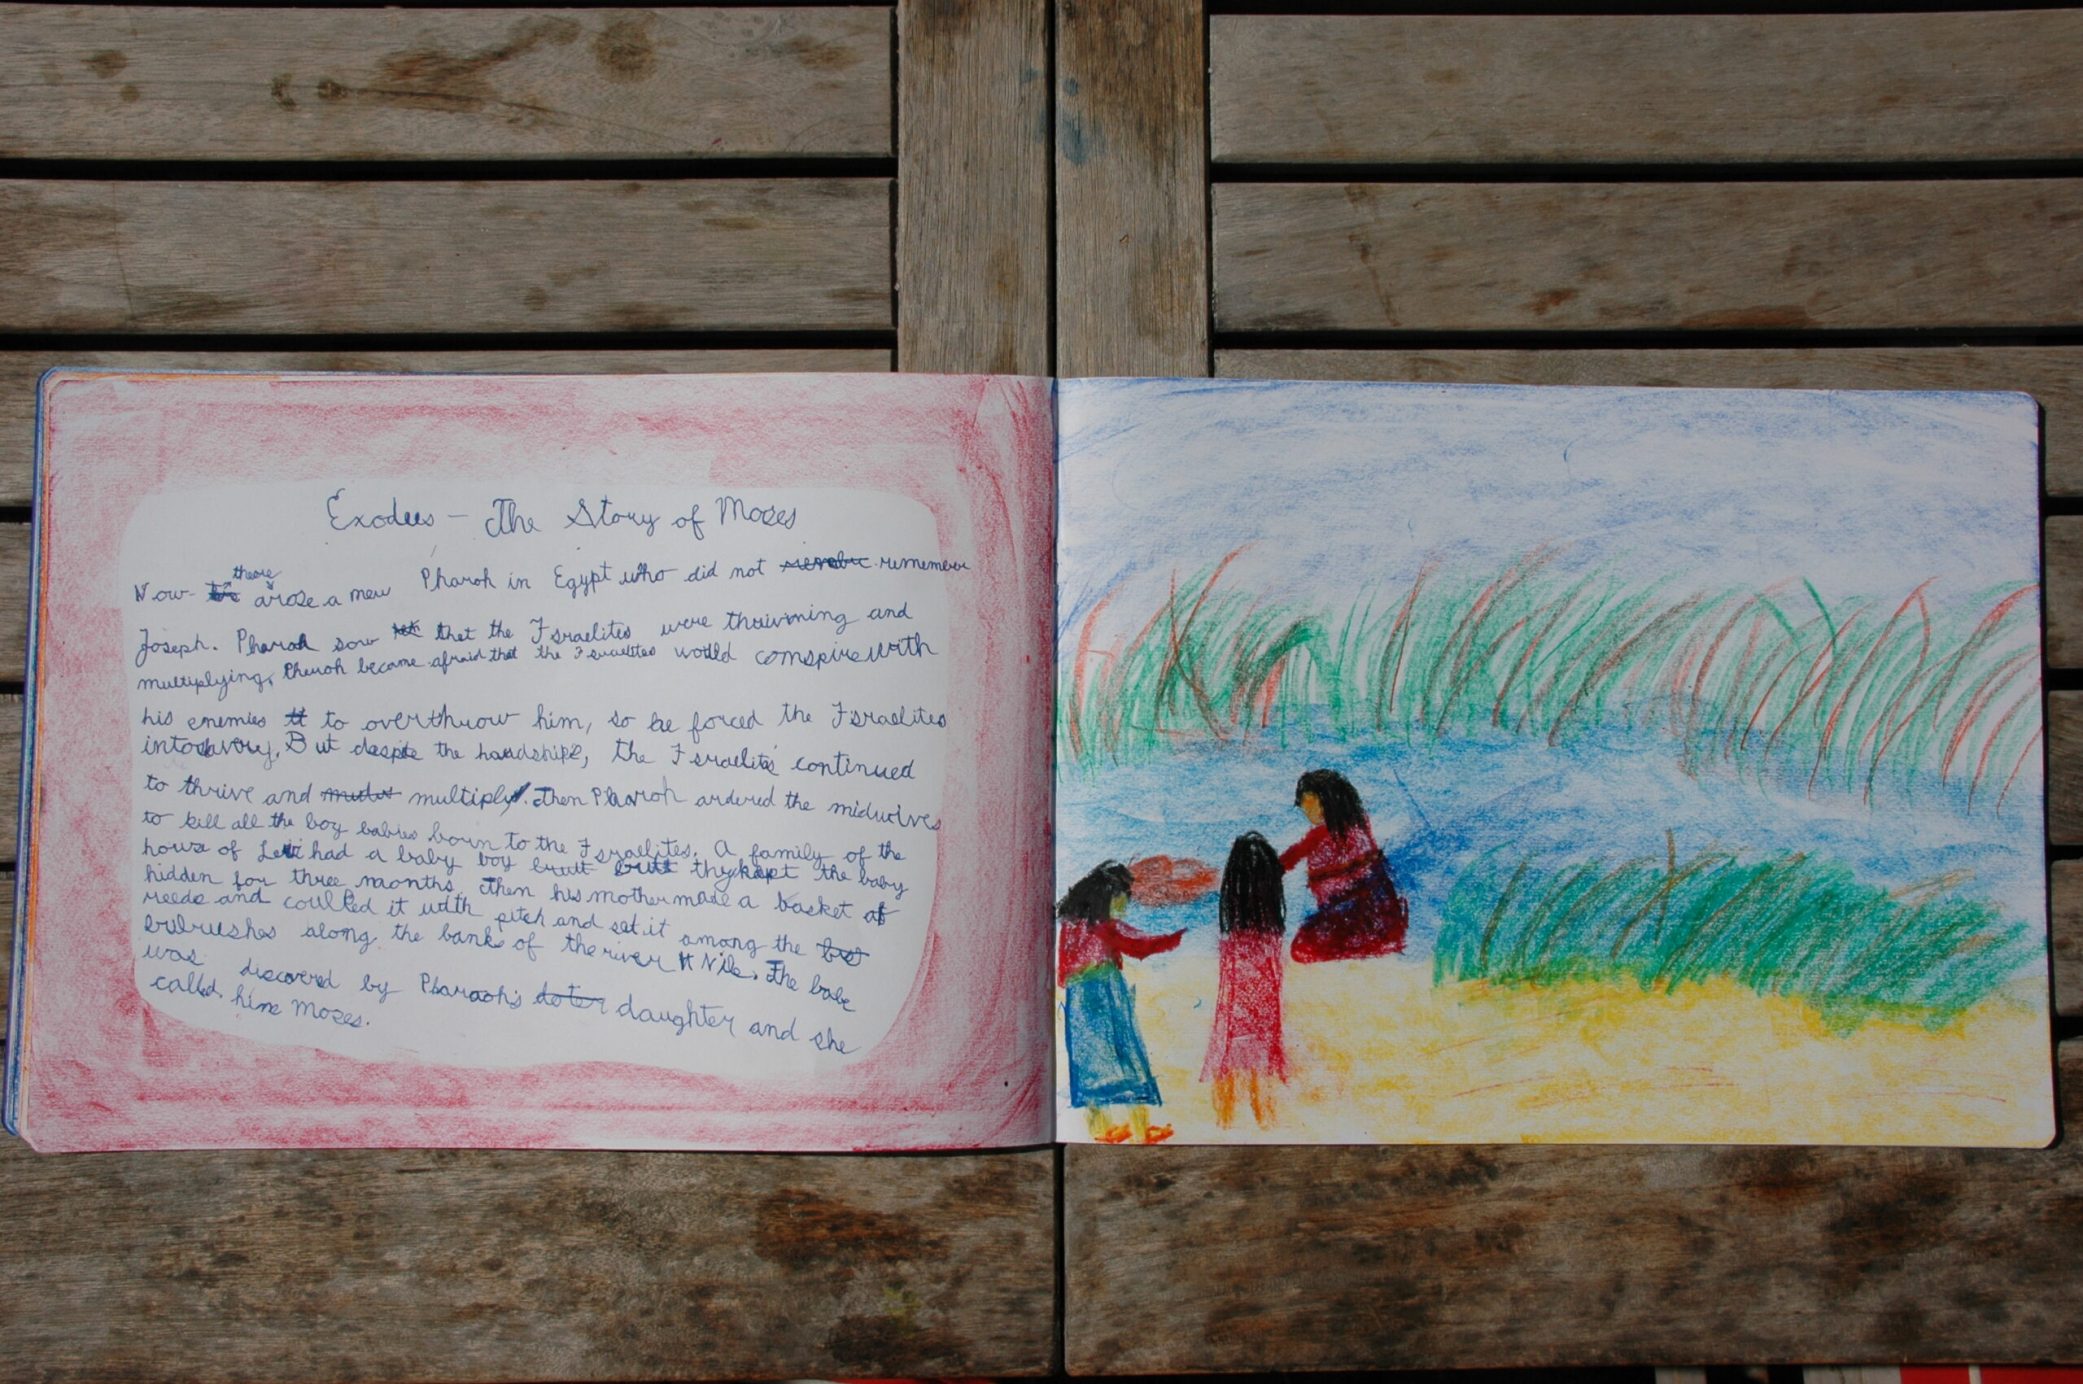 Exodus - The Story of Moses
Now there arose a new Pharoh in Egypt who did not rememeber
Joseph. Pharoh sow that the Israelites were thrivining and
multiplying. Pharoh became afraid that the Israelites would comspire with
his enemies to overthrow him, so he forced the Israelites
into slavery. But despite the hardships, the Israelites continued
to thrive and multiply. Then Pharoh ordered the midwives
to kill all the boy babies born to the Israelites. A family of the
house of Levi had a baby boy they kept the baby
hidden for three months. Then his mother made a basket of
reeds and coulked it with pitch and set it among the
bulrushes along the banks of the river Nile. The babe
was discovered by Pharaoh's daughter and she
called him Moses.